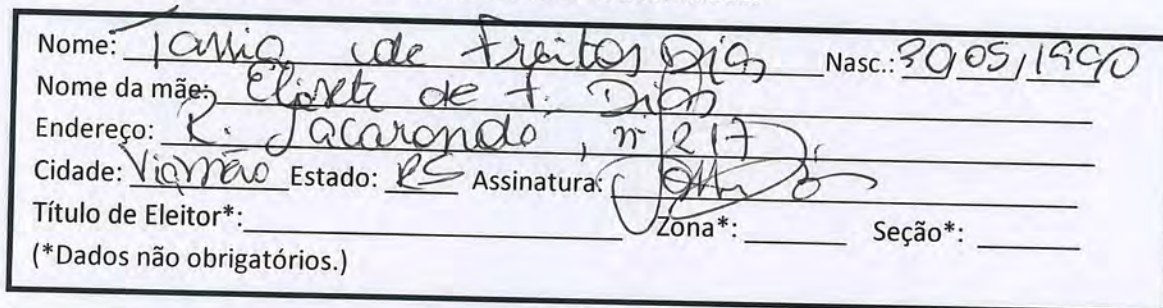 Nome: Tassia de Freitas Dias Nasc.: 30/05/1990
Nome da mãe: Elisete de F. Dias
Endereço: R. Jacarandá, nº 217
Cidade: Viamão Estado: RS Assinatura:
Título de Eleitor*: Zona*: Seção*:
(*Dados não obrigatórios.)